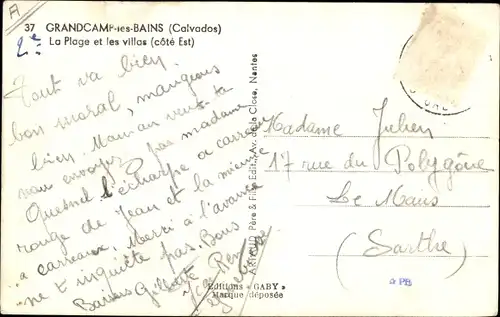 37 GRANDCAMP-les-BAINS (Calvados)
La Plage et les villas (côté Est)
2e
Tout va bien
bon moral, mangeons
bien. Maman veux-tu
nous envoyer par madame
Quesnel l'écharpe a carreaux
rouge de Jean et la mienne
a carreaux. Merci à l'avance
ne t'inquiète pas. Bons
Baisers Gilberte
ARTAUD Père & Fils, Edit., Av. de la Close, Nantes
Madame Julien
17 rue du Polygône
Le Mans
(Sarthe)
Editions "GABY"
Marque déposée
PB